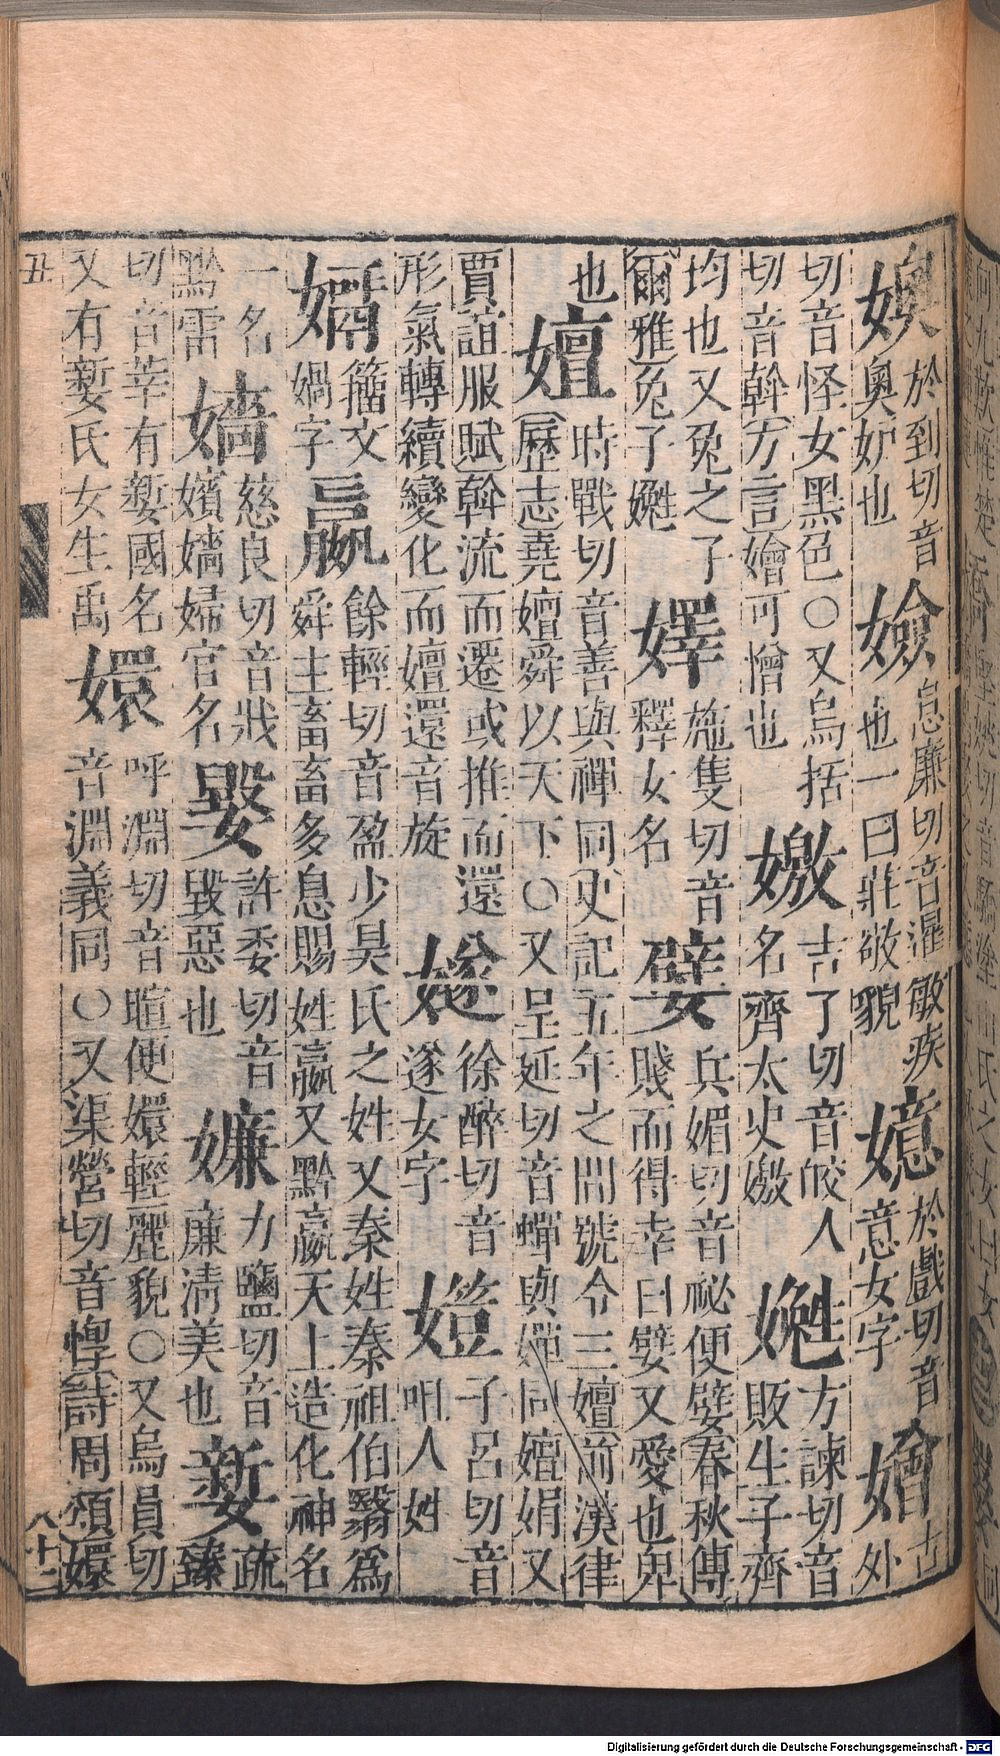 㜩於到切音
奧妒也
嬐息廉切音暹敏疾
也一曰莊敬貌
嬑於戲切音
意女字
嬒古
外
切音怪女黑色○又烏括
切音斡方言嬒可憎也
嬓吉了切音皎人
名齊太史嬓
嬔方諫切音
販生子齊
均也又兔之子
爾雅兔子嬔
嬕施隻切音
釋女名
嬖兵媚切音祕便嬖春秋傳
賤而得幸曰嬖又愛也卑
也
嬗時戰切音善與禪同史記五年之間號令三嬗前漢律
歷志堯嬗舜以天下○又呈延切音蟬與嬋同嬗娟又
賈誼服賦斡流而遷或推而還
形氣轉續變化而嬗還音旋
嬘徐醉切音
遂女字
子呂切音
咀人姓
籒文
媧字
嬴餘輕切音盈少昊氏之姓又秦姓秦祖伯翳爲
舜主畜畜多息賜姓嬴又黔嬴天上造化神名
一名
黔雷
嬙慈良切音戕
嬪嬙婦官名
許委切音
毀惡也
嬚力鹽切音
廉淸美也
嬜疏
臻
切音莘有嬜國名
又有嬜氏女生禹
嬛呼淵切音暄便嬛輕麗貌○又烏員切
音淵義同○又渠營切音惸詩周頌嬛
丑
八十二
Digitalisierung gefördert durch die Deutsche Forschungsgemeinschaft - DFG